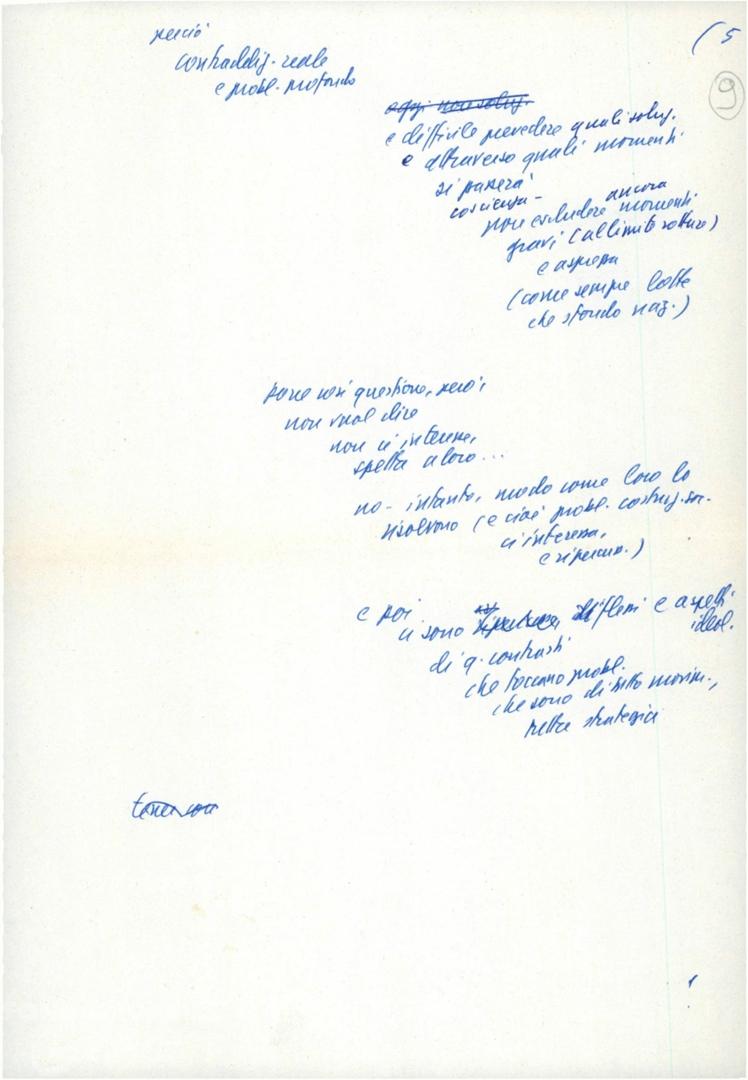 perciò
(5
contraddiz. reale
9
e probl. profondo
oggi non soluz.
è difficile prevedere quali soluz.
e attraverso quali momenti
si passerà
coscienza -
ancora
non escludere momenti
gravi (al limite rotture)
e asprezza
(come sempre lotte
che sfondo naz.)
porre così questione, però,
non vuol dire
non ci interessa,
spetta a loro...
no - intanto, modo come loro lo
risolvono (e cioè probl. costruz. soc.
ci interessa,
e ripercuo.)
e poi
ci sono riflessi e aspetti
ideol.
di q. contrasti
che toccano probl.
che sono di tutto movim.,
nella strategia